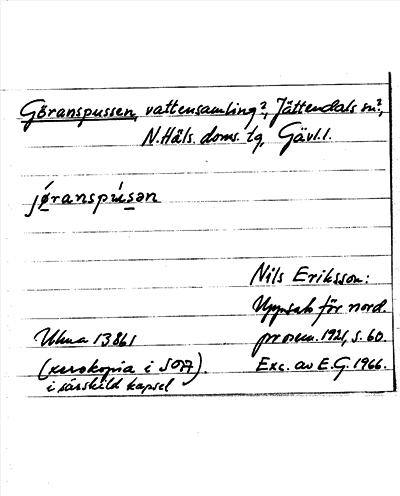 Göranspussen, vattensamling?, Jättendals sn?,
N. Häls. doms. tg, Gävl. l.
jǿranspúsən
Nils Eriksson:
Uppsats för nord.
prosem. 1921, s. 60.
Exc. av E.G. 1966.
Uhma 13861
(xerokopia i SOA).
i särskild kapsel